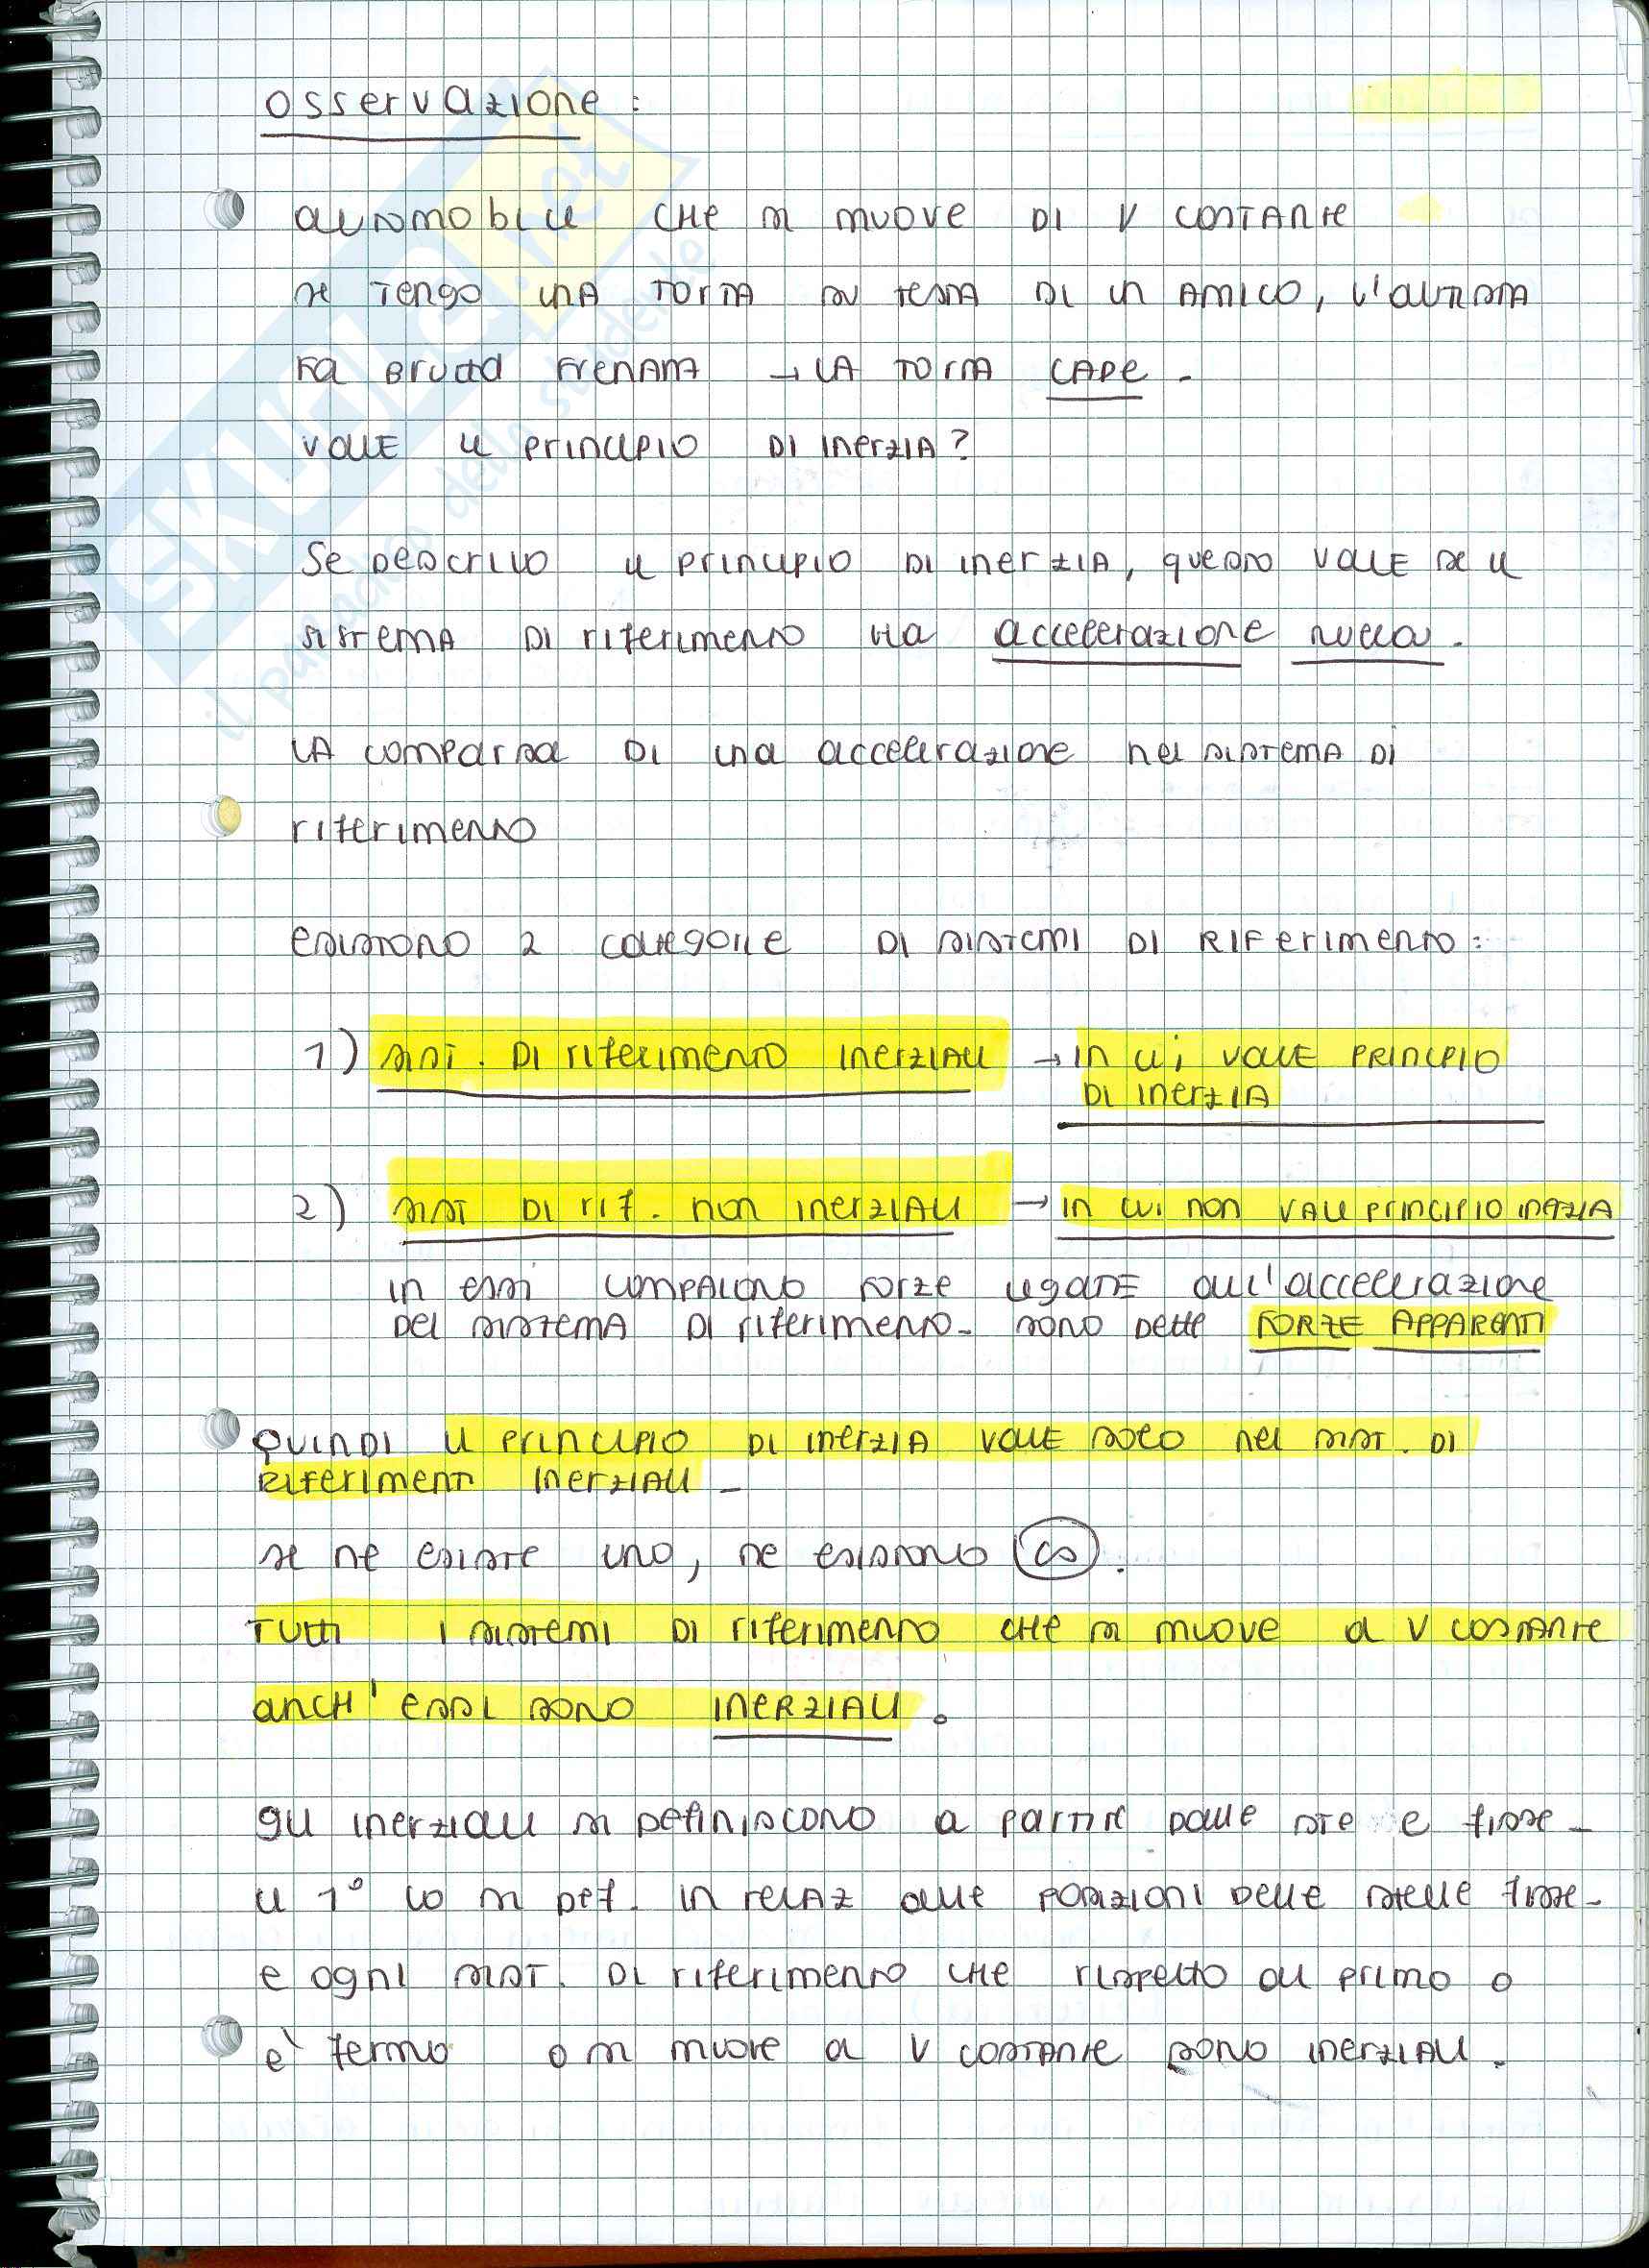 osservazione :
automobile CHE si muove DI V COSTANTE
se TENGO UNA TORTA su TESTA DI un AMICO, l'autista
FA BRUTTA FRENATA → LA TORTA CADE.
VALE il PRINCIPIO DI INERZIA?
Se DESCRIVO il PRINCIPIO DI INERZIA, questo VALE se il
SISTEMA DI riferimento HA accelerazione nulla.
LA comparsa DI una accelerazione nel SISTEMA DI
riferimento
ESISTONO 2 categorie DI SISTEMI DI RIFerimento:
1) SIST. DI riferimento INERZIALI → in cui VALE PRINCIPIO
DI INERZIA
2) SIST DI rif. non INERZIALI → in cui non VALE PRINCIPIO INERZIA
in essi COMPAIONO FORZE legate all'accelerazione
DEL SISTEMA DI riferimento. SONO Dette FORZE APPARENTI
QUINDI il PRINCIPIO DI INERZIA VALE SOLO nei SIST. DI
RIFERIMENTI INERZIALI.
se ne esiste uno, ne esistono ∞.
TUTTI I SISTEMI DI riferimento CHE si muove a V COSTANTE
ANCH' ESSI SONO INERZIALI.
gli inerziali si DEFINISCONO a PARTIRE DALLE STE e fisse.
il 1° lo si DEF. in RELAZ alle POSIZIONI DELLE stelle fisse.
e OGNI SIST. DI riferimento CHE rispetto al primo o
e' fermo o si muove a V COSTANTE SONO INERZIALI.
SKUOLA.net
il paradiso dello studente